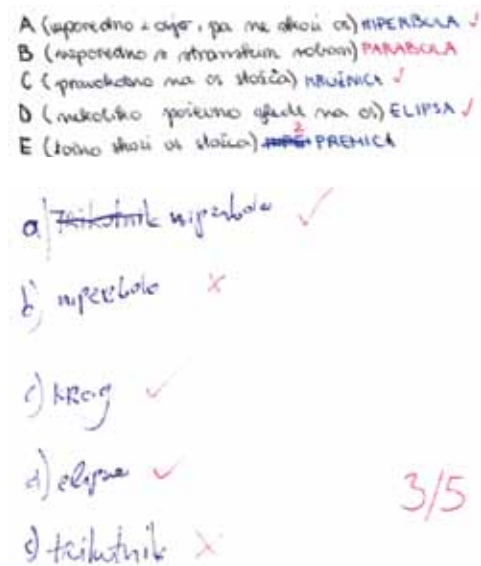 A (vzporedno z osjo, pa ne skozi os) HIPERBOLA ✓
B (vzporedno s stranskim robom) PARABOLA
C (pravokotno na os stožca) KROŽNICA ✓
D (nekoliko poševno glede na os) ELIPSA ✓
E (točno skozi os stožca) 2 PREMICA
a) Trikotnik hiperbola ✓
b) hiperbola ×
c) KROg ✓
d) elipse ✓
3/5
e) trikotnik ×